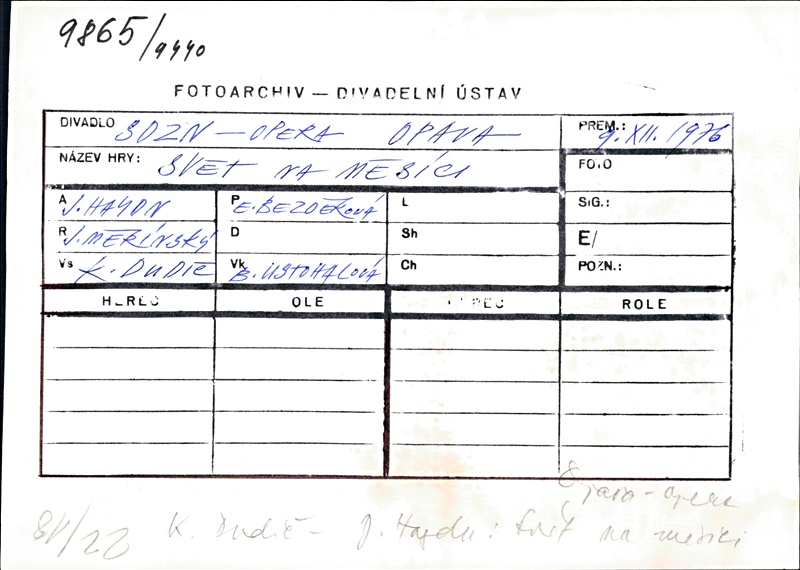 9865/9440
FOTOARCHIV — DIVADELNÍ ÚSTAV
DIVADLO SDZN — OPERA OPAVA PREM.: 9. XII. 1976
NÁZEV HRY: SVĚT NA MĚSÍCI FOTO
A J. HAYDN P E. BEZDĚKOVÁ L SIG.:
R J. MERÍNSKÝ D Sh E/
Vs K. DUDIČ Vk B. USTOHALOVÁ Ch POZN.:
HEREC OLE REC ROLE
opera
81/22 K. Dudič — J. Haydn: Svět na měsíci